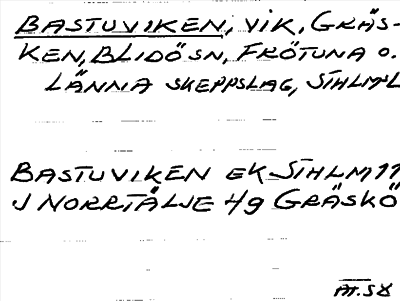 BASTUVIKEN, VIK, GRÄS-
KEN, BLIDÖ SN, FRÖTUNA O.
LÄNNA SKEPPSLAG, STHLMS L
BASTUVIKEN EK STHLM 11
J NORRTÄLJE 4g GRÄSKÖ